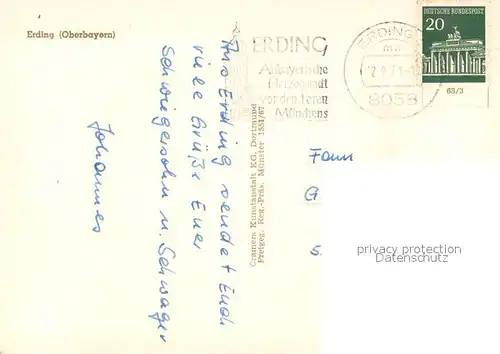 Erding (Oberbayern)
Aus Erding sendet Euch
viele Grüße Euer
Schwiegersohn u. Schwager
Johannes
Cramers Kunstanstalt KG, Dortmund
Freigeg. Reg.-Präs. Münster 1551/67
ERDING
Altbayerische
Herzogstadt
vor den Toren
Münchens
ERDING
8058
DEUTSCHE BUNDESPOST
20
63/3
Fam
G
S
privacy protection
oldthing.com